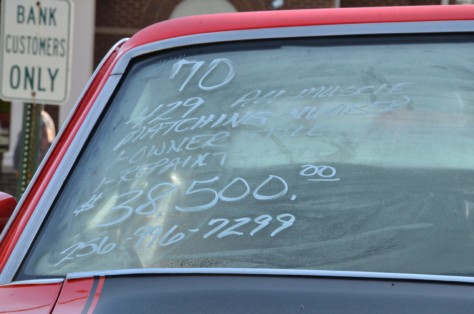 BANK
CUSTOMERS
ONLY
'70
429 ALL MUSCLE
MATCHING NUMBERS
1-OWNER
1-REPAINT
$38,500.00
256-996-7299